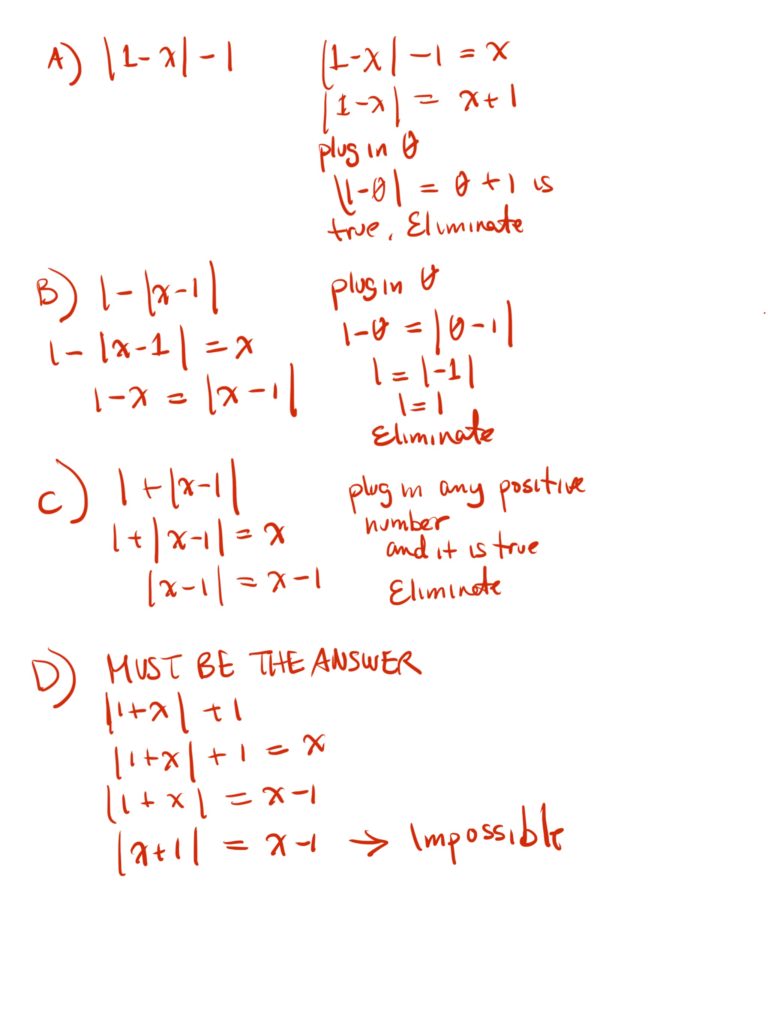 A) |1-x|-1
|1-x|-1 = x
|1-x| = x+1
plug in 0
|1-0| = 0+1 is
true, Eliminate
B) 1-|x-1|
1-|x-1| = x
1-x = |x-1|
plug in 0
1-0 = |0-1|
1 = |-1|
1=1
Eliminate
C) 1+|x-1|
1+|x-1| = x
|x-1| = x-1
plug in any positive
number
and it is true
Eliminate
D) MUST BE THE ANSWER
|1+x| +1
|1+x| +1 = x
|1+x| = x-1
|x+1| = x-1 → Impossible